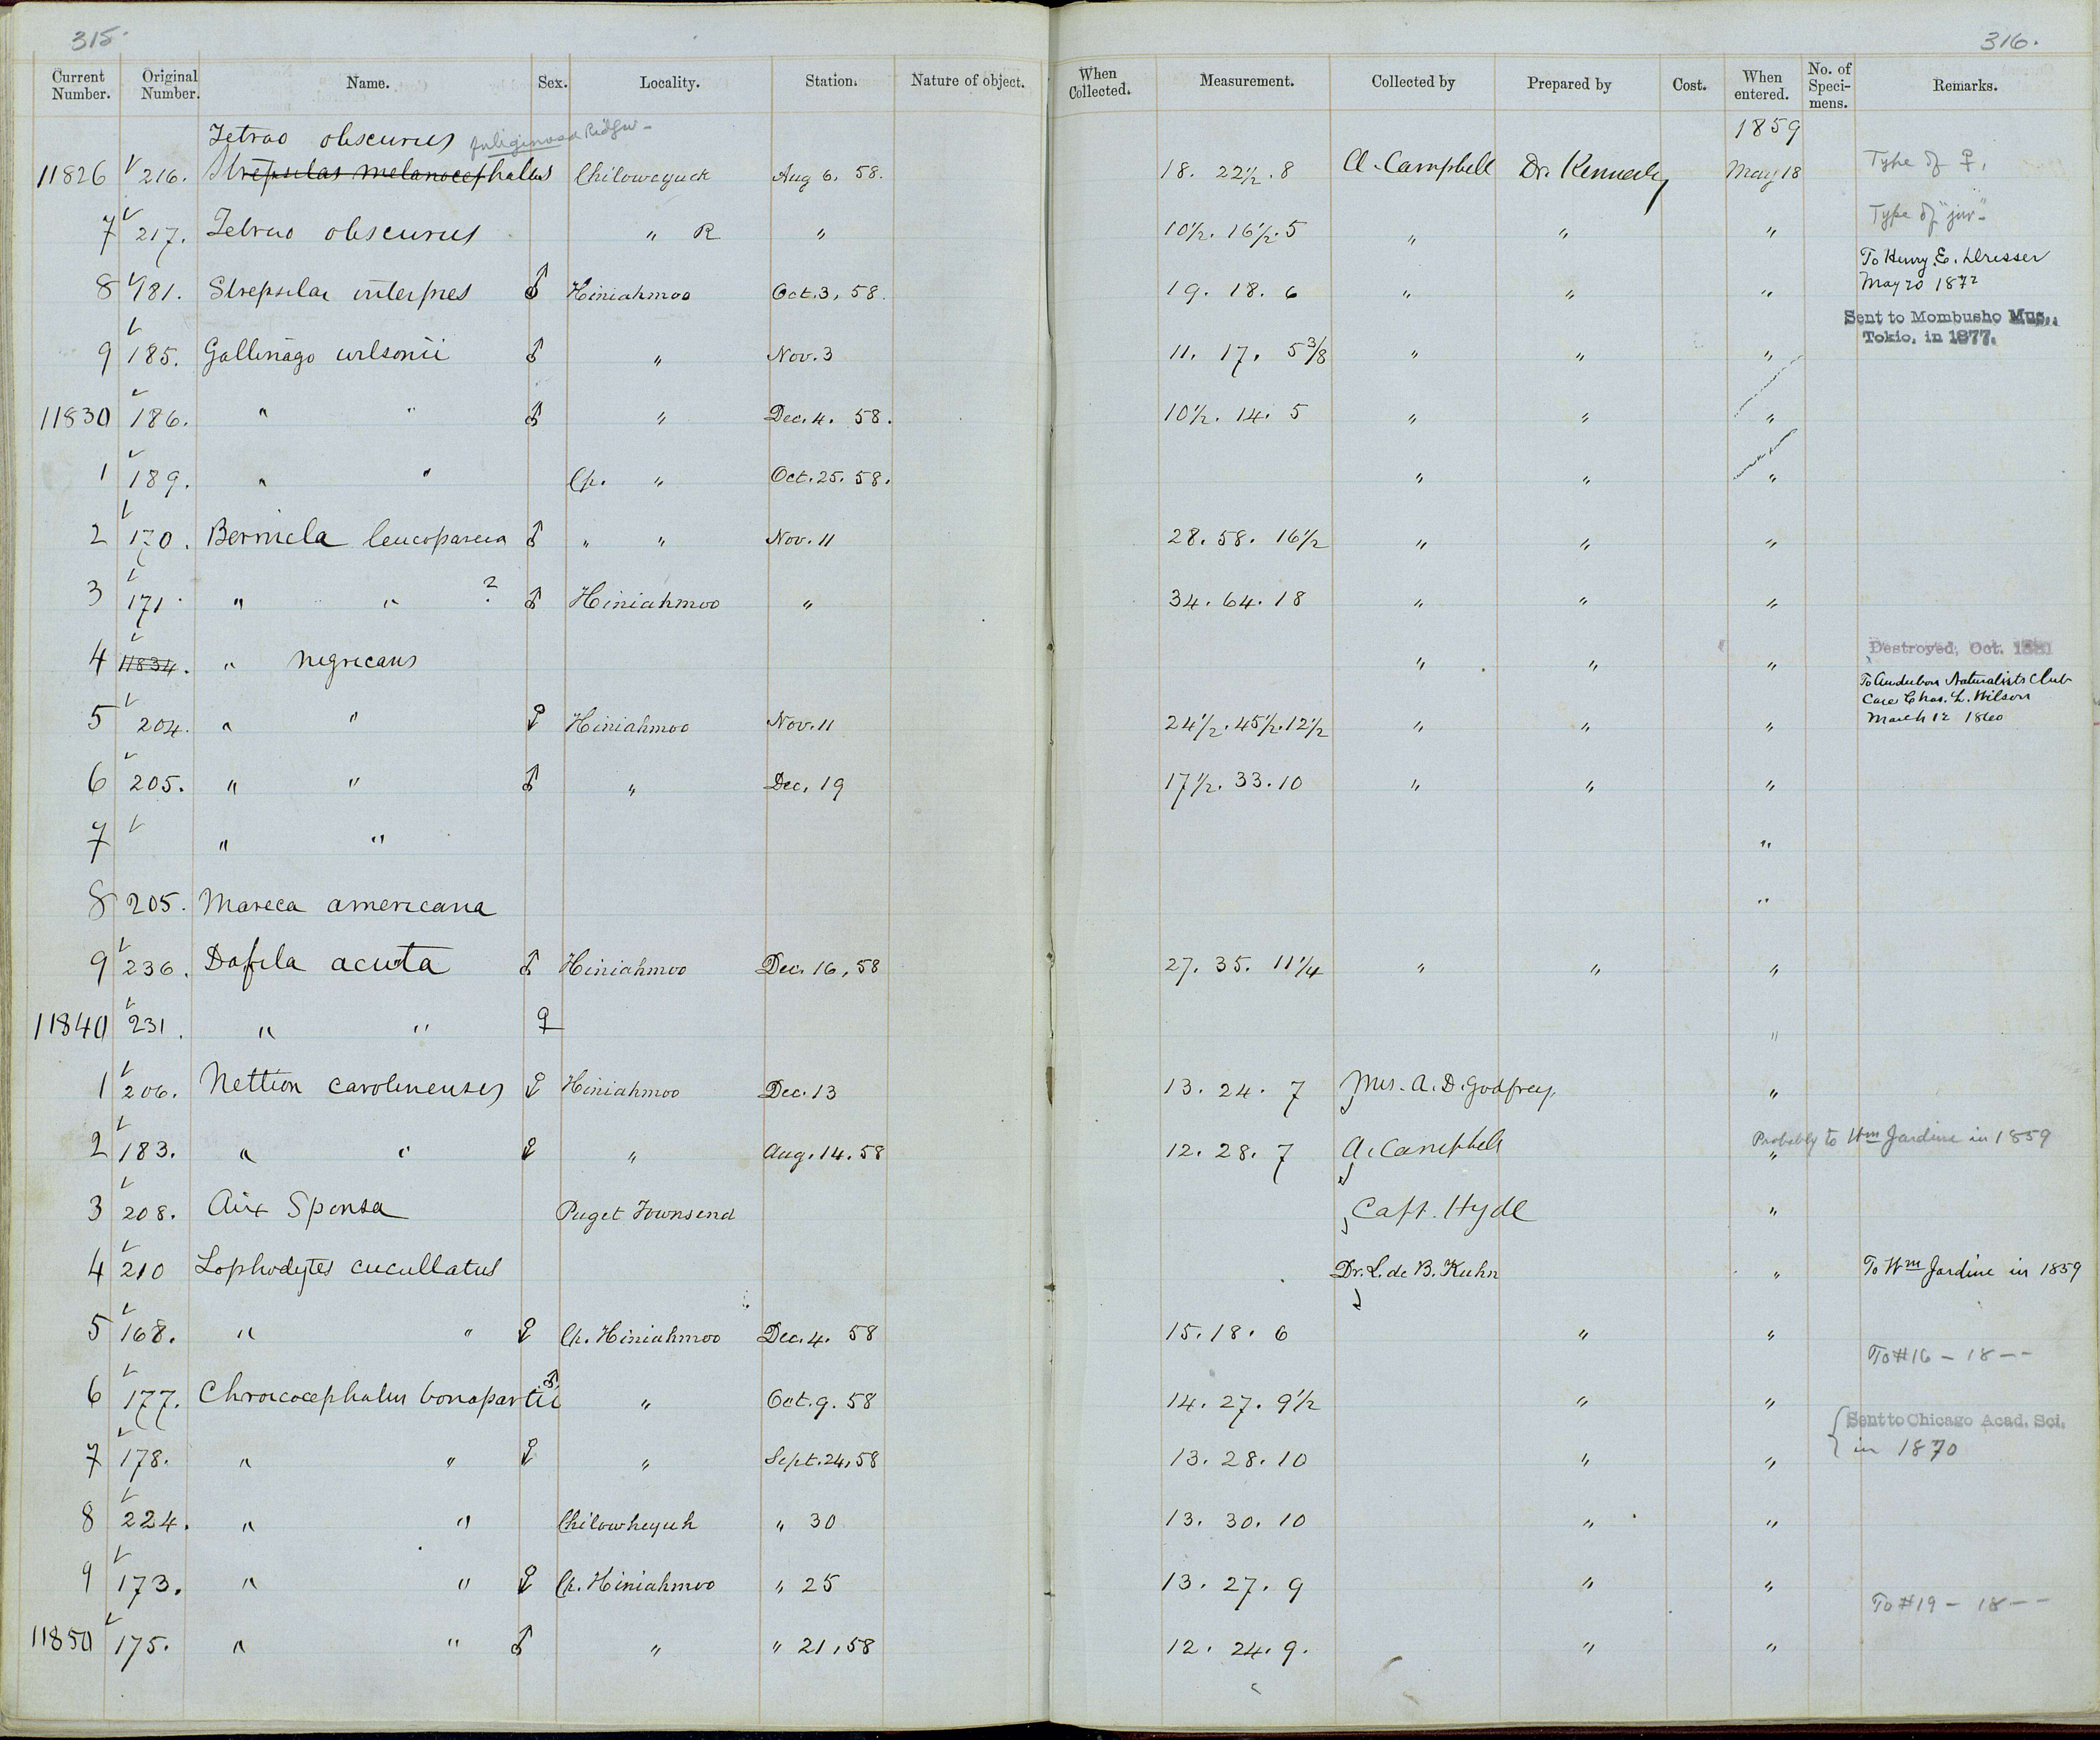 315.
316.
Current Number. Original Number. Name. Sex. Locality. Station. Nature of object. When Collected. Measurement. Collected by Prepared by Cost. When entered. No. of Speci-mens. Remarks.
Tetrao obscurus fuliginosa Ridgw- 1859
11826 216. Strepsilas melanocephalus Chiloweyuck Aug 6, 58. 18. 22½. 8 A. Campbell Dr. Kennerly May 18 Type of ♀.
7 217. Tetrao obscurus " R " 10½. 16½. 5 " " " Type of "juv"-
8 181. Strepsilas interpres ♂ Hiniahmoo Oct. 3, 58. 19. 18. 6 " " " To Henry E. Dresser May 20 1872
9 185. Gallinago wilsonii ♂ " Nov. 3 11. 17. 5⅜ " " " Sent to Mombusho Mus., Tokio, in 1877.
11830 186. " " ♂ " Dec. 4. 58. 10½. 14. 5 " " "
1 189. " " Ch. " Oct. 25. 58. " " "
2 170. Bernicla leucopareia ♂ " " Nov. 11 28. 58. 16½ " " "
3 171. " " ? ♂ Hiniahmoo " 34. 64. 18 " " "
4 11834. " nigricans " " " Destroyed, Oct. 1881
To Audubon Naturalists Club
Care Chas. L. Wilson
5 204. " " ♀ Hiniahmoo Nov. 11 24½. 45½. 12½ " " " March 12 1860
6 205. " " ♂ " Dec. 19 17½. 33. 10 " " "
7 " " "
8 205. Mareca americana "
9 236. Dafila acuta ♂ Hiniahmoo Dec. 16, 58 27. 35. 11¼ " " "
11840 231. " " ♀ "
1 206. Nettion carolinensis ♀ Hiniahmoo Dec. 13 13. 24. 7 Mrs. A. D. Godfrey. "
2 183. " " ♀ " Aug. 14. 58 12. 28. 7 A. Campbell " Probably to Wm Jardine in 1859
3 208. Aix Sponsa Puget Townsend Capt. Hyde "
4 210 Lophodytes cucullatus Dr. L. de B. Kuhn " To Wm Jardine in 1859
5 168. " " ♀ Ch. Hiniahmoo Dec. 4. 58 15. 18. 6 " "
To #16 - 18 - -
6 177. Chroicocephalus bonapartii ♂ " Oct. 9. 58 14. 27. 9½ " "
Sent to Chicago Acad. Sci. in 1870
7 178. " " ♀ " Sept. 24, 58 13. 28. 10 " "
8 224. " " Chilowheyuk " 30 13. 30. 10 " "
9 173. " " ♀ Ch. Hiniahmoo " 25 13. 27. 9 " "
To #19 - 18 - -
11850 175. " " ♂ " " 21, 58 12. 24. 9. " "